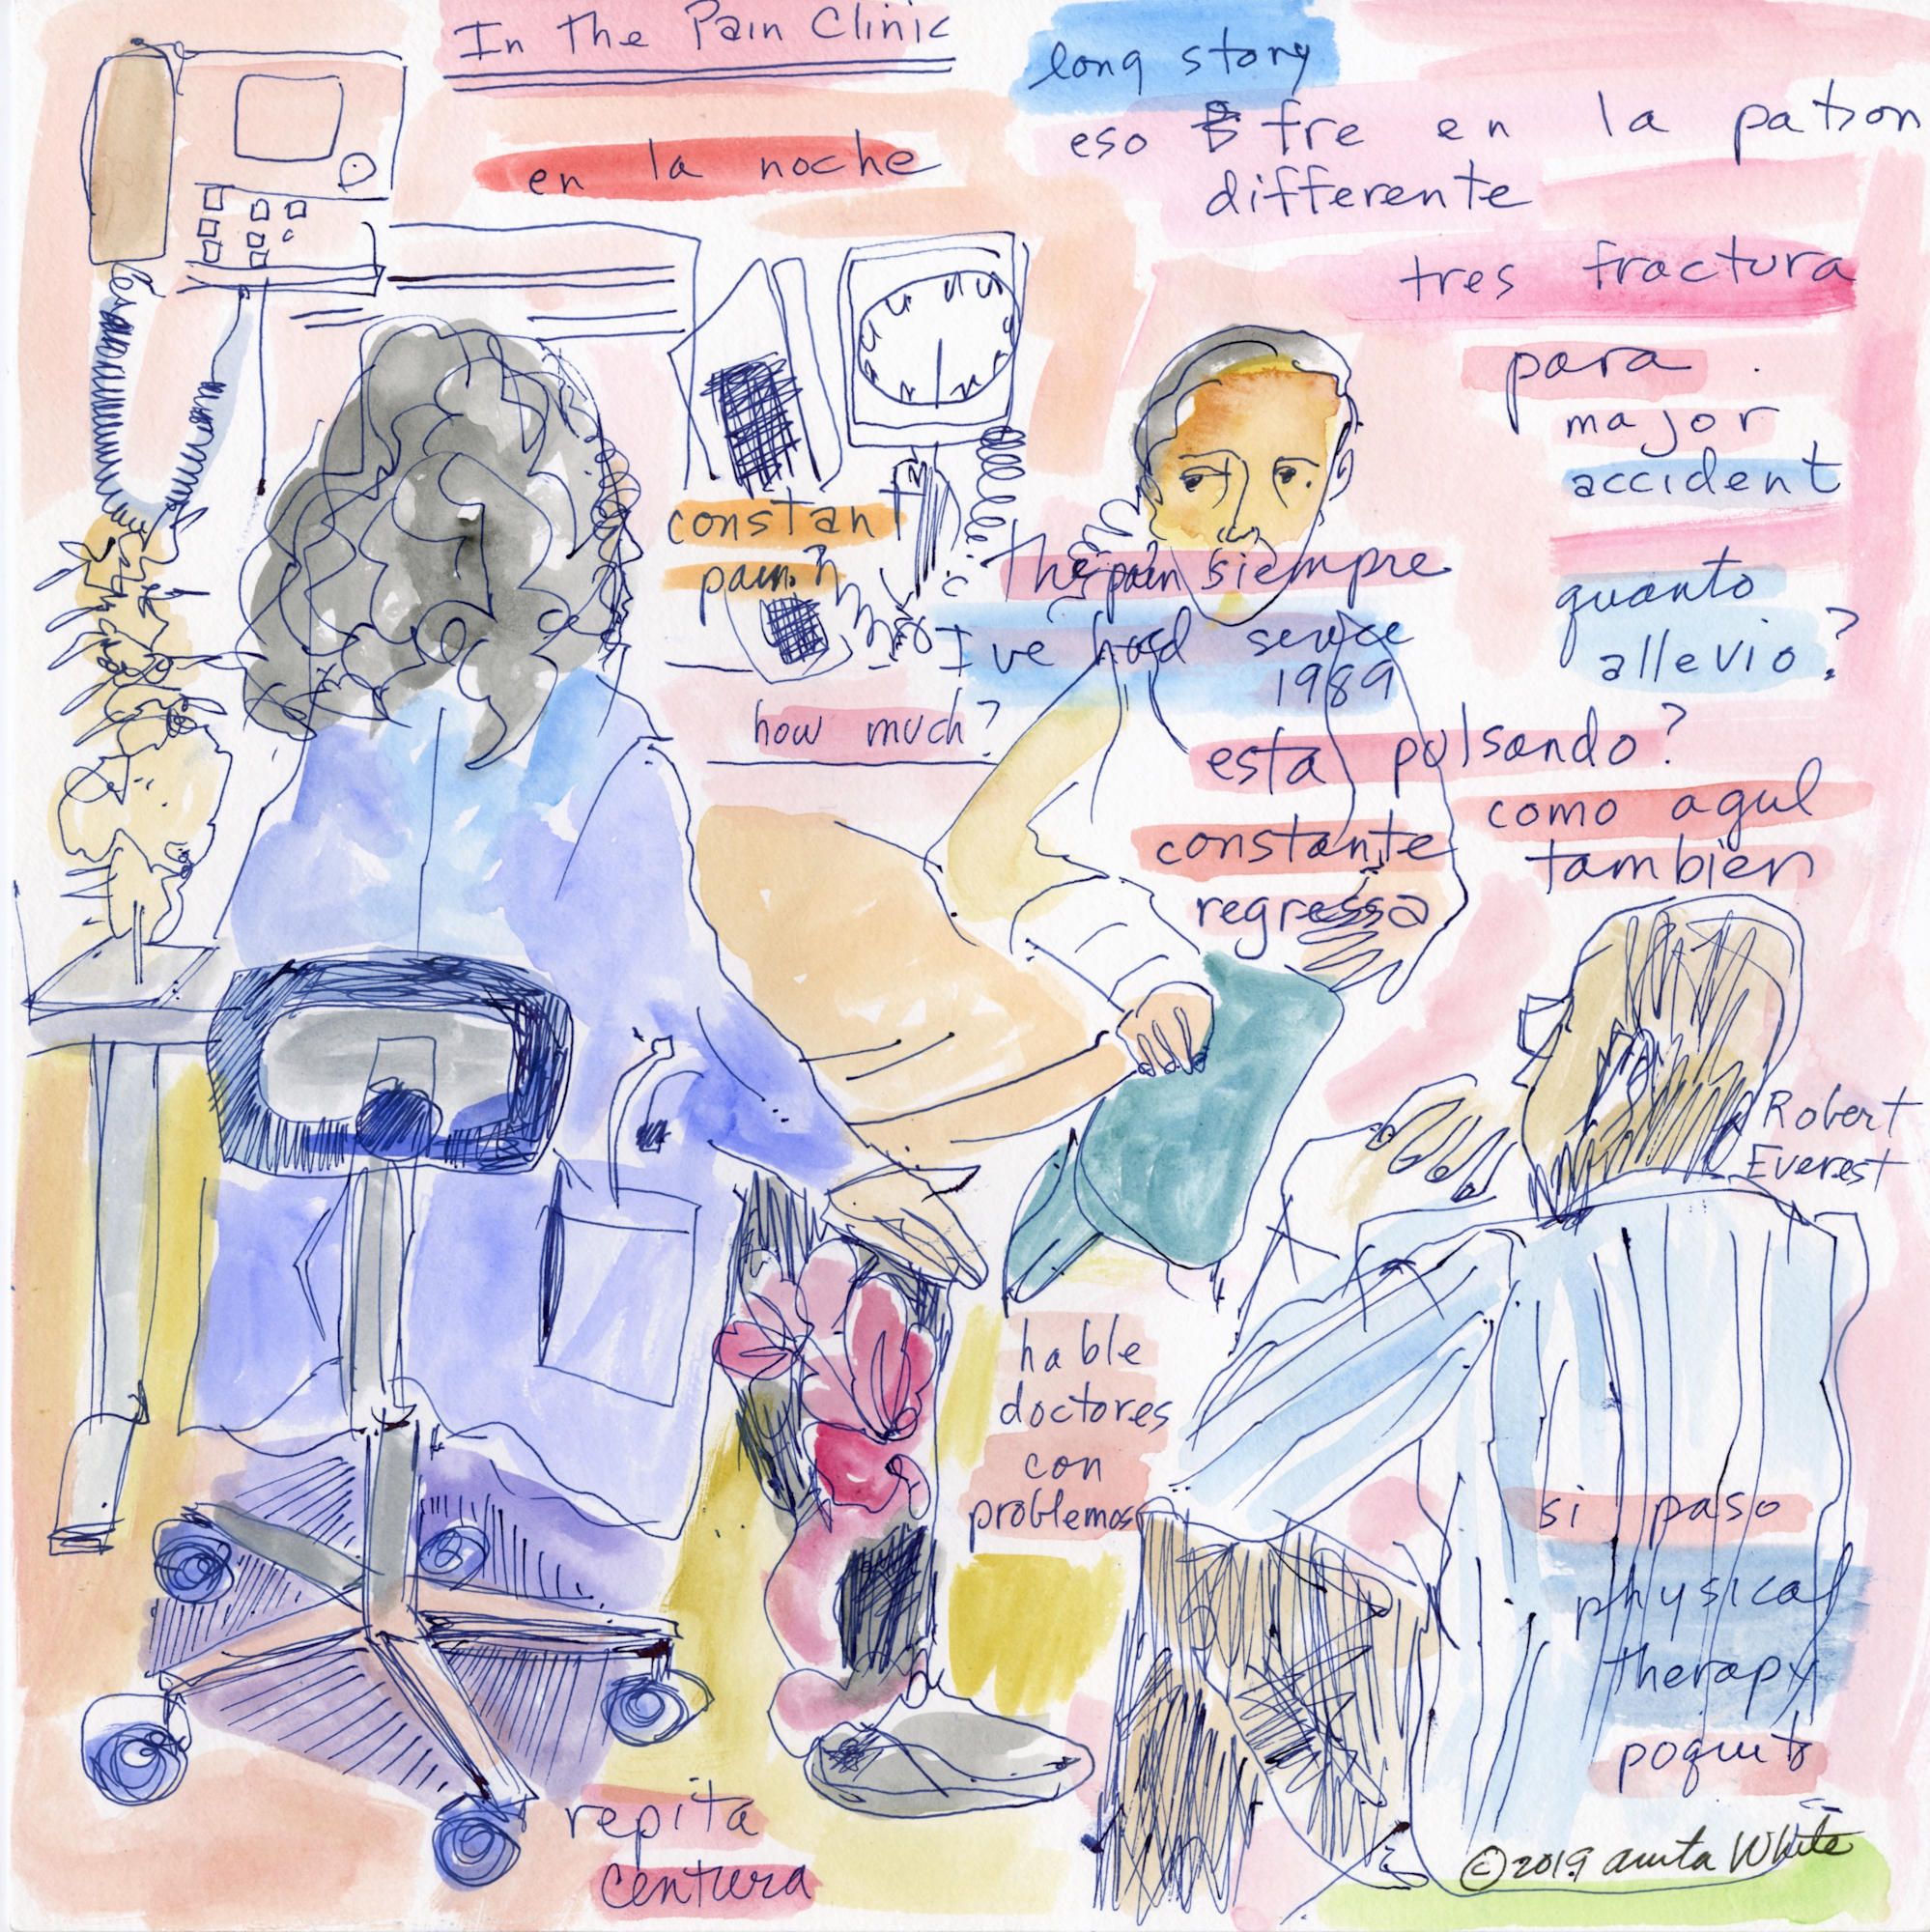 In The Pain Clinic
long story
eso fre en la patson
differente
en la noche
tres fractura
para
major
accident
constant
pain?
The pain siempre
I've had
1989
how much?
quanto
allevio?
esta pulsando?
como agul
tambien
constante
regressa
Robert
Everest
hable
doctores
con
problemos
si paso
physical
therapy
poquito
repita
centura
©2019 Anita White